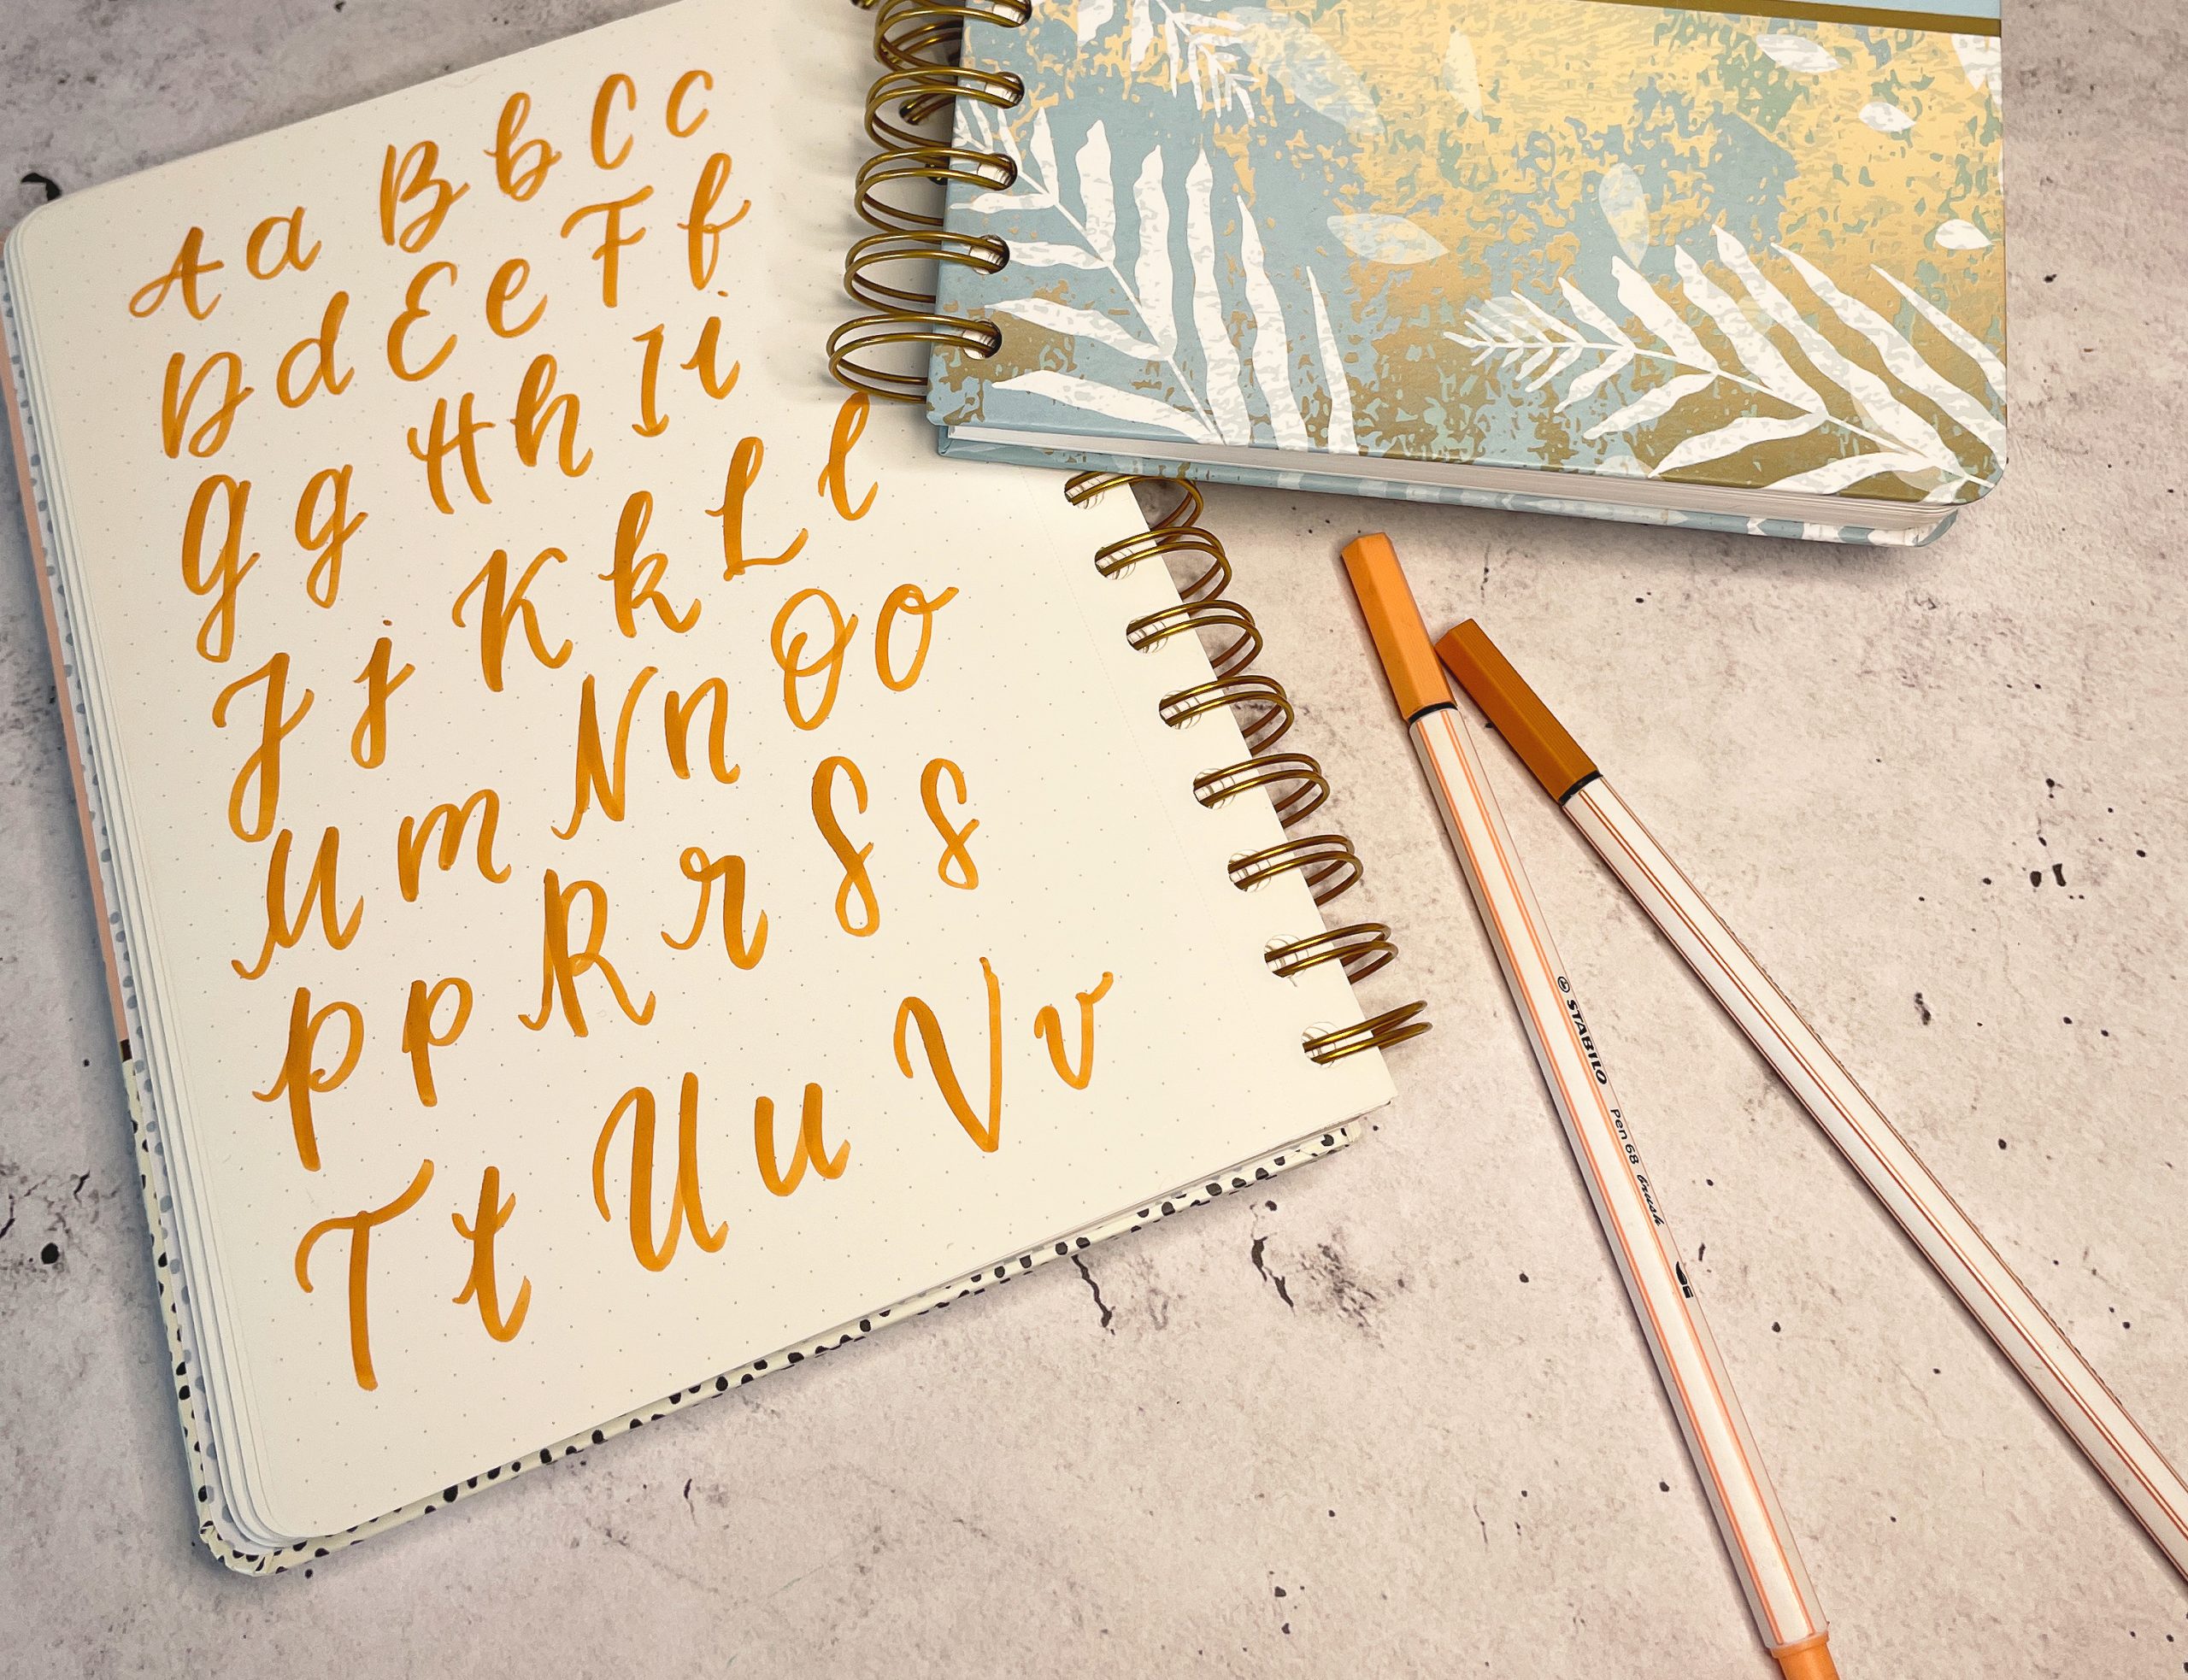 Aa Bb Cc
Dd Ee Ff
Gg Hh Ii
Jj Kk Ll
Mm Nn Oo
Pp Rr Ss
Tt Uu Vv
STABILO Pen 68 brush